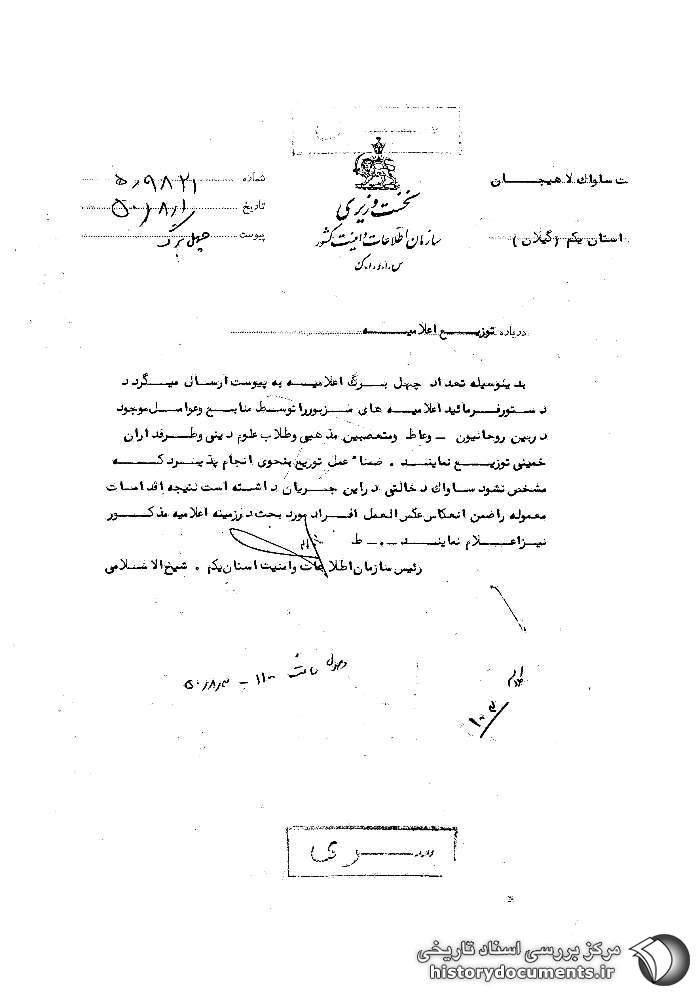 ت ساواک لاهیجان
شماره ۵٫۹۸۲۱
نخست وزیری
تاریخ ۵۰/۸/۱
استان یکم (گیلان)
سازمان اطلاعات و امنیت کشور
پیوست چهل برگ
س.ا.و.ا.ک
درباره توزیع اعلامیه
بدینوسیله تعداد چهل برگ اعلامیه به پیوست ارسال میگردد
دستور فرمائید اعلامیه های مزبور را توسط منابع و عوامل موجود
در بین روحانیون - وعاظ ومتعصبین مذهبی وطلاب علوم دینی وطرفداران
خمینی توزیع نمایند . ضمنا" عمل توزیع بنحوی انجام پذیرد که
مشخص نشود ساواک دخالتی در این جریان داشته است نتیجه اقدامات
معموله را ضمن انعکاس عکس العمل افراد مورد بحث در زمینه اعلامیه مذکور
نیز اعلام نمایند - . ط
رئیس سازمان اطلاعات وامنیت استان یکم . شیخ الاسلامی
۱۱۰۰ - ۵۰/۸/۳
سری
مرکز بررسی اسناد تاریخی
historydocuments.ir